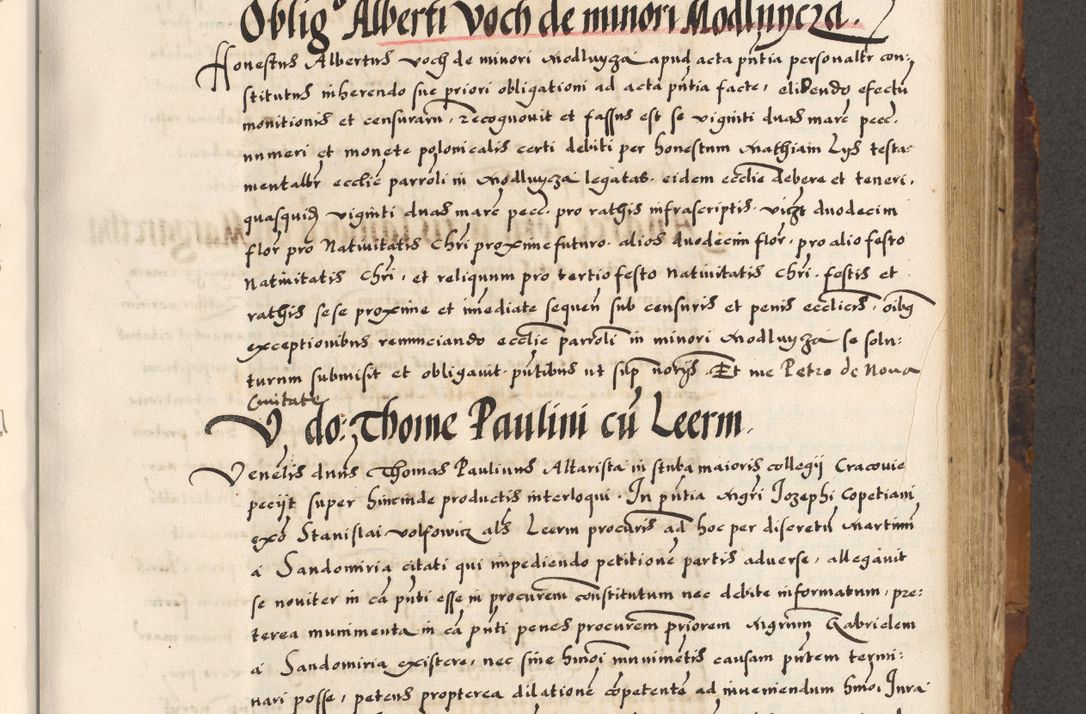 Oblig° Alberti Voch de minori Modlnycza.
Honestus Albertus voch de minori modlnycza apud acta pñtia personaltr con;
stitutus inherendo sue priori obligationi ad acta pñtia facte, elidendo efectu
monitionis et censuram, Recognovit et fassus est se viginti duas marc pecc.
numeri et monete polonicalis certi debiti per honestum Mathiam Lys testa:
mentalr ecclie parroli in modlnycza legatas. eidem ecclie debere et teneri,
quasquidz viginti duas marc pecc. pro rathis infrascriptis. vizt duodecim
flor pro Nativitatis Chri proxime futuro. alios duodecim flor. pro alio festo
Nativitatis Chri, et reliquum pro tertio festo Nativitatis Chri. festis et
rathis sese proxime et imediate sequen sub censuris et penis ecclicis, oibq
exceptionibus renunciando ecclie parroli in minori modlnycza se solu:
turum submisit et obligavit. pñtibus ut supr norijs. Et me Petro de Nova
Civitate
V, do: Thome Paulini cũ Leerm.
Venelis dnus Thomas Paulinus Altarista in stuba maioris collegij Cracovie
pecijt super hincinde productis interloqui. In pñtia mgri Jozephi Copetiani
exo Stanislai volfowicz als Leerm procuris ad hoc per discretũ Martinũ
a Sandomiria citati qui impediendo petitionẽ partis adverse, allegavit
se noviter in cã pñti esse in procurem constitutum nec debite informatum, pre:
terea munimenta in cã pñti penes procurem priorem mgrum Gabrielem
a Sandomiria existere, nec sine hmoi munimẽtis causam pñtem termi:
nari posse, petens propterea dilationẽ cõpetentẽ ad inveniendum hmoi Jura